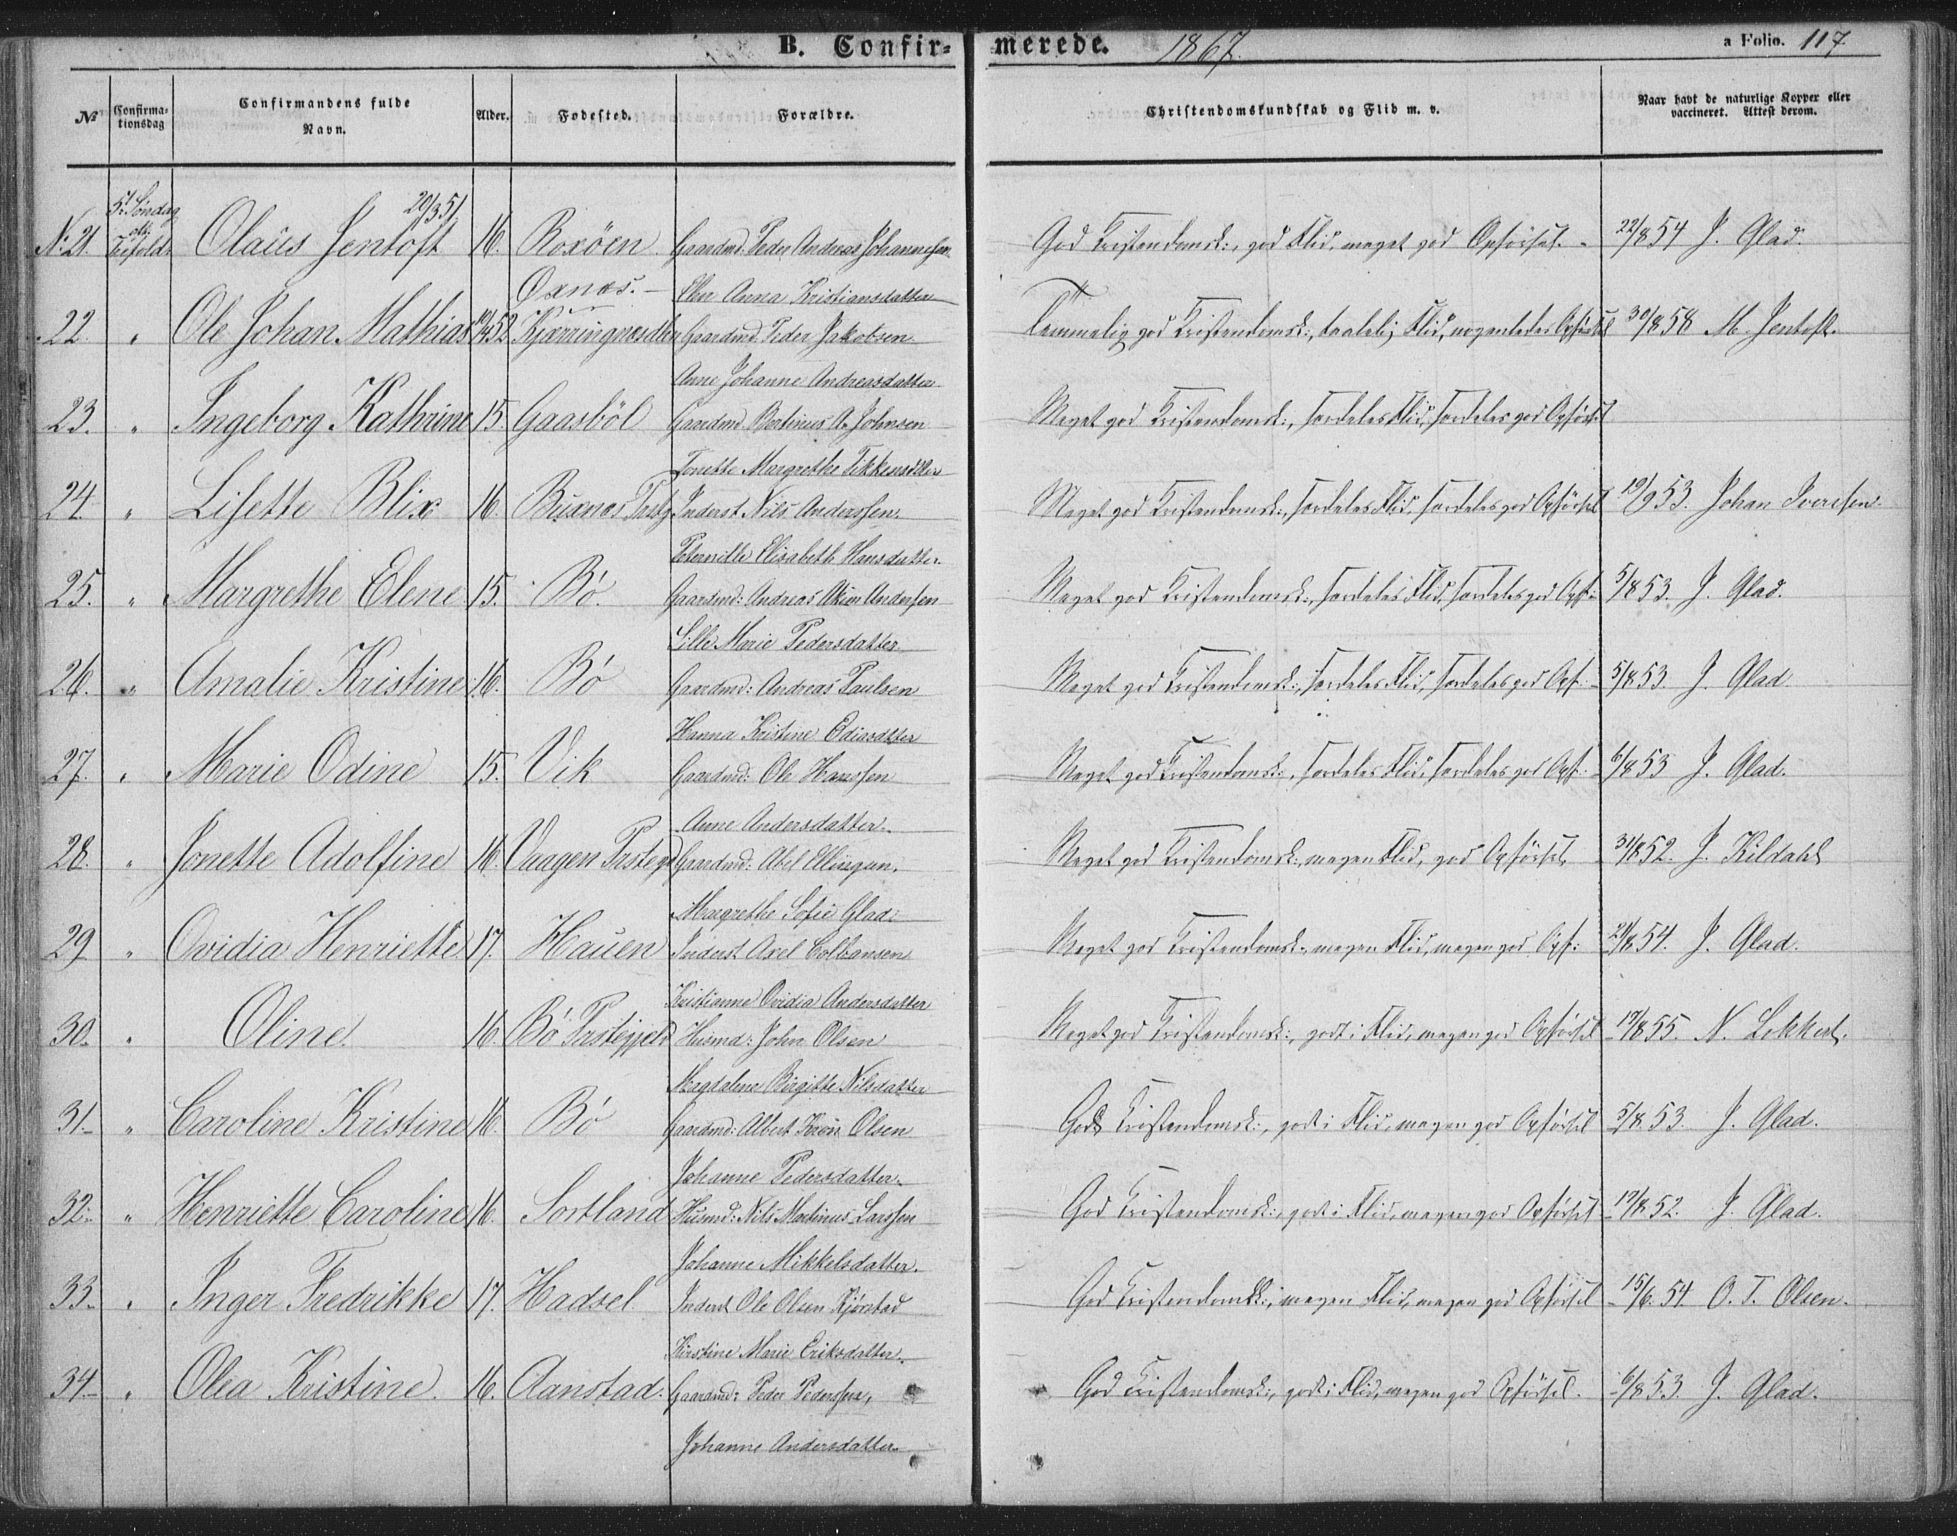 B. Confir- merede. 1867. a Folio. 117
No Confirmationsdag Confirmandens fulde Navn. Alder. Fødested. Forældre. Christendomskundskab og Flid m. v. Naar havt de naturlige Kopper eller vaccineret. Attest derom.
5t Søndag 29/3 51
No 21. Trefoldr Olaus Jentoft 16. Roxöen Gaardmd: Peder Andreas Johannesen God Kristendomsk:, god Flid, meget god Opførsel. 22/8 54 J. Glad.
Öxnes. Elen Anna Kristiansdatter
22. " Ole Johan Mathias 52 Kjærringnesdlen Gaardmd. Peder Jakobsen Temmelig god Kristendomsk:, taalelig Flid, nogenledes Opførsel 30/8 58 M. Jentoft.
Anne Johanne Andreasdatter
23. " Ingeborg Kathrine 15 Gaasböl Gaardmd Bertinus A. Johnsen Meget god Kristendomsk:, særdeles Flid, særdeles god Opførsel
Tonette Margrethe
24. " Lisette Blix 16. Buxnes Prstgj Inderst Nils Anderssen. Meget god Kristendomsk:, særdeles Flid, særdeles god Opførsel 19/9 53. Johan Iverssen.
Peternille Elisabeth Hansdatter.
25. " Margrethe Elene 15. Bö. Gaardmd: Andreas Andersen Meget god Kristendomsk:, særdeles Flid, særdeles god Opf: 5/8 53. J. Glad.
Sille Marie Pedersdatter
26. " Amalie Kristine 16. Bö Gaardmd: Andreas Paulsen Meget god Kristendomsk:, særdeles Flid, særdeles god Opf: 5/8 53 J. Glad
Hanna Kristine Odinsdatter
27. " Marie Odine 15. Vik Gaardmd: Ole Hanssen Meget god Kristendomsk:, særdeles Flid, særdeles god Opf: 6/8 53 J. Glad.
Anne Andersdatter.
28. " Jonette Adolfine 16. Vaagen Prstegd Gaardmd: Abel Ellingsen. Meget god Kristendomsk:, megen Flid, god Opførsel, 31/8 52. J. Kildahl
Margrethe Sofie Glad.
29 " Ovidia Henriette 17. Hauen Inderst Axel Colbansen Meget god Kristendomsk:, megen Flid, megen god Opf: 21/8 54. J. Glad.
Kristianne Ovidia Andersdatter
30. " Oline. 16. Bö Prstegjeld Husmd: John Olsen Meget god Kristendomsk:, godt i Flid, megen god Opførsel 17/8 55. N. Lokkert.
Magdalena Birgitte Nilsdatter
31. " Caroline Kristine 16. Bö Gaardmd: Albert Olsen God Kristendomsk:, godt i Flid, megen god Opførsel 5/8 53. J. Glad.
Johanne Pedersdatter.
32. " Henriette Caroline 16. Sortland Husmd: Nils Martinus Larssen God Kristendomsk:, godt i Flid, megen god Opførsel 17/8 52. J. Glad.
Johanne Mikkelsdatter.
33. " Inger Fredrikke 17. Hadsel Inderst Ole Olsen Kjørstad God Kristendomsk:, megen Flid, megen god Opførsel 15/6 54. O. T. Olsen.
Kirstine Marie Eriksdatter.
34. " Olea Kristine. 16. Aanstad. Gaardmd: Peder Pederssen, God Kristendomsk:, godt i Flid, megen god Opførsel. 6/8 53. J. Glad.
Johanne Andersdatter